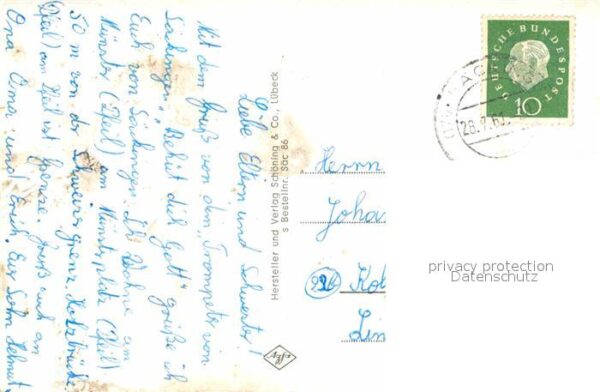 Liebe Eltern und Schwester!
Mit dem Gruß von dem „Trompeter von
Säckingen" „Behüt dich Gott" grüße ich
Euch von Säckingen. Ich Wohne am
Münster (Pfeil) am Münsterplatz (Pfeil)
50 m von der Schweizergrenze. Holzbrücke
(Pfeil) am Pfeil ist Grenze. Gruß auch an
Ona Oma und Erich. Eur Sohn Helmut.
Hersteller und Verlag Schöning & Co., Lübeck
s Bestellnr. Säc 86
Agfa
DEUTSCHE BUNDESPOST
10
28.9.60
Herrn
Joha
(22c) Kol
Lin
privacy protection
Datenschutz